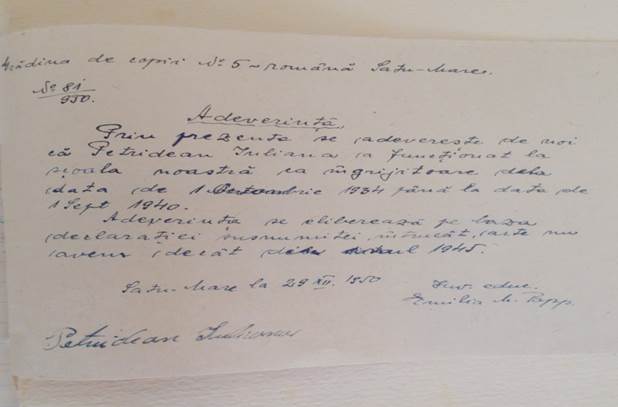 Grădina de copii Nº 5 - română Satu-Mare.
Nº 81
950.
Adeverință
Prin prezenta se adeverește de noi
că Petridean Iuliana a funcționat la
școala noastră ca îngrijitoare dela
data de 1 Octombrie 1934 până la data de
1 Sept 1940.
Adeverința se eliberează pe baza
declarației susnumitei, întrucât, acte nu
avem decât din anul 1945.
Satu-Mare la 29 XII. 1950
educ.
Emilia M. Papp.
Petridean Iuliana